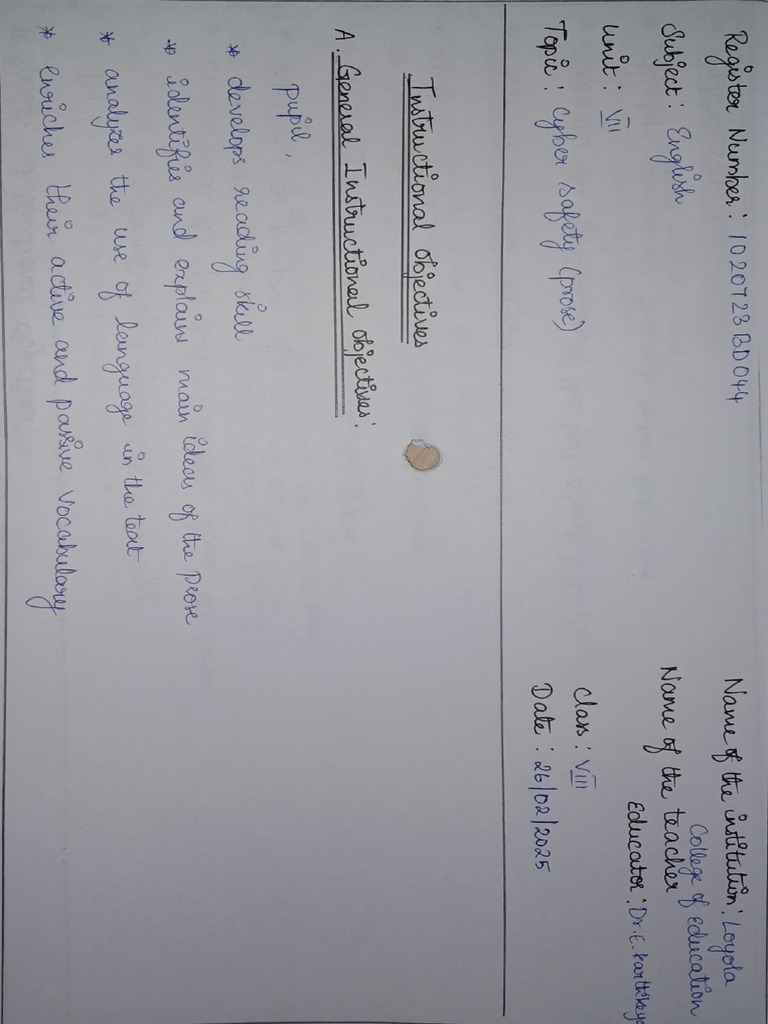 Register Number: 1020723BD044
Name of the institution: Loyola
College of Education
Subject: English
Name of the teacher
Educator: Dr.E.
Unit: VII
Class: VIII
Topic: Cyber safety (prose)
Date: 26/02/2025
Instructional objectives
A. General Instructional objectives:
pupil,
* develops reading skill
* identifies and explains main ideas of the prose
* analyzes the use of language in the text
* enriches their active and passive vocabulary